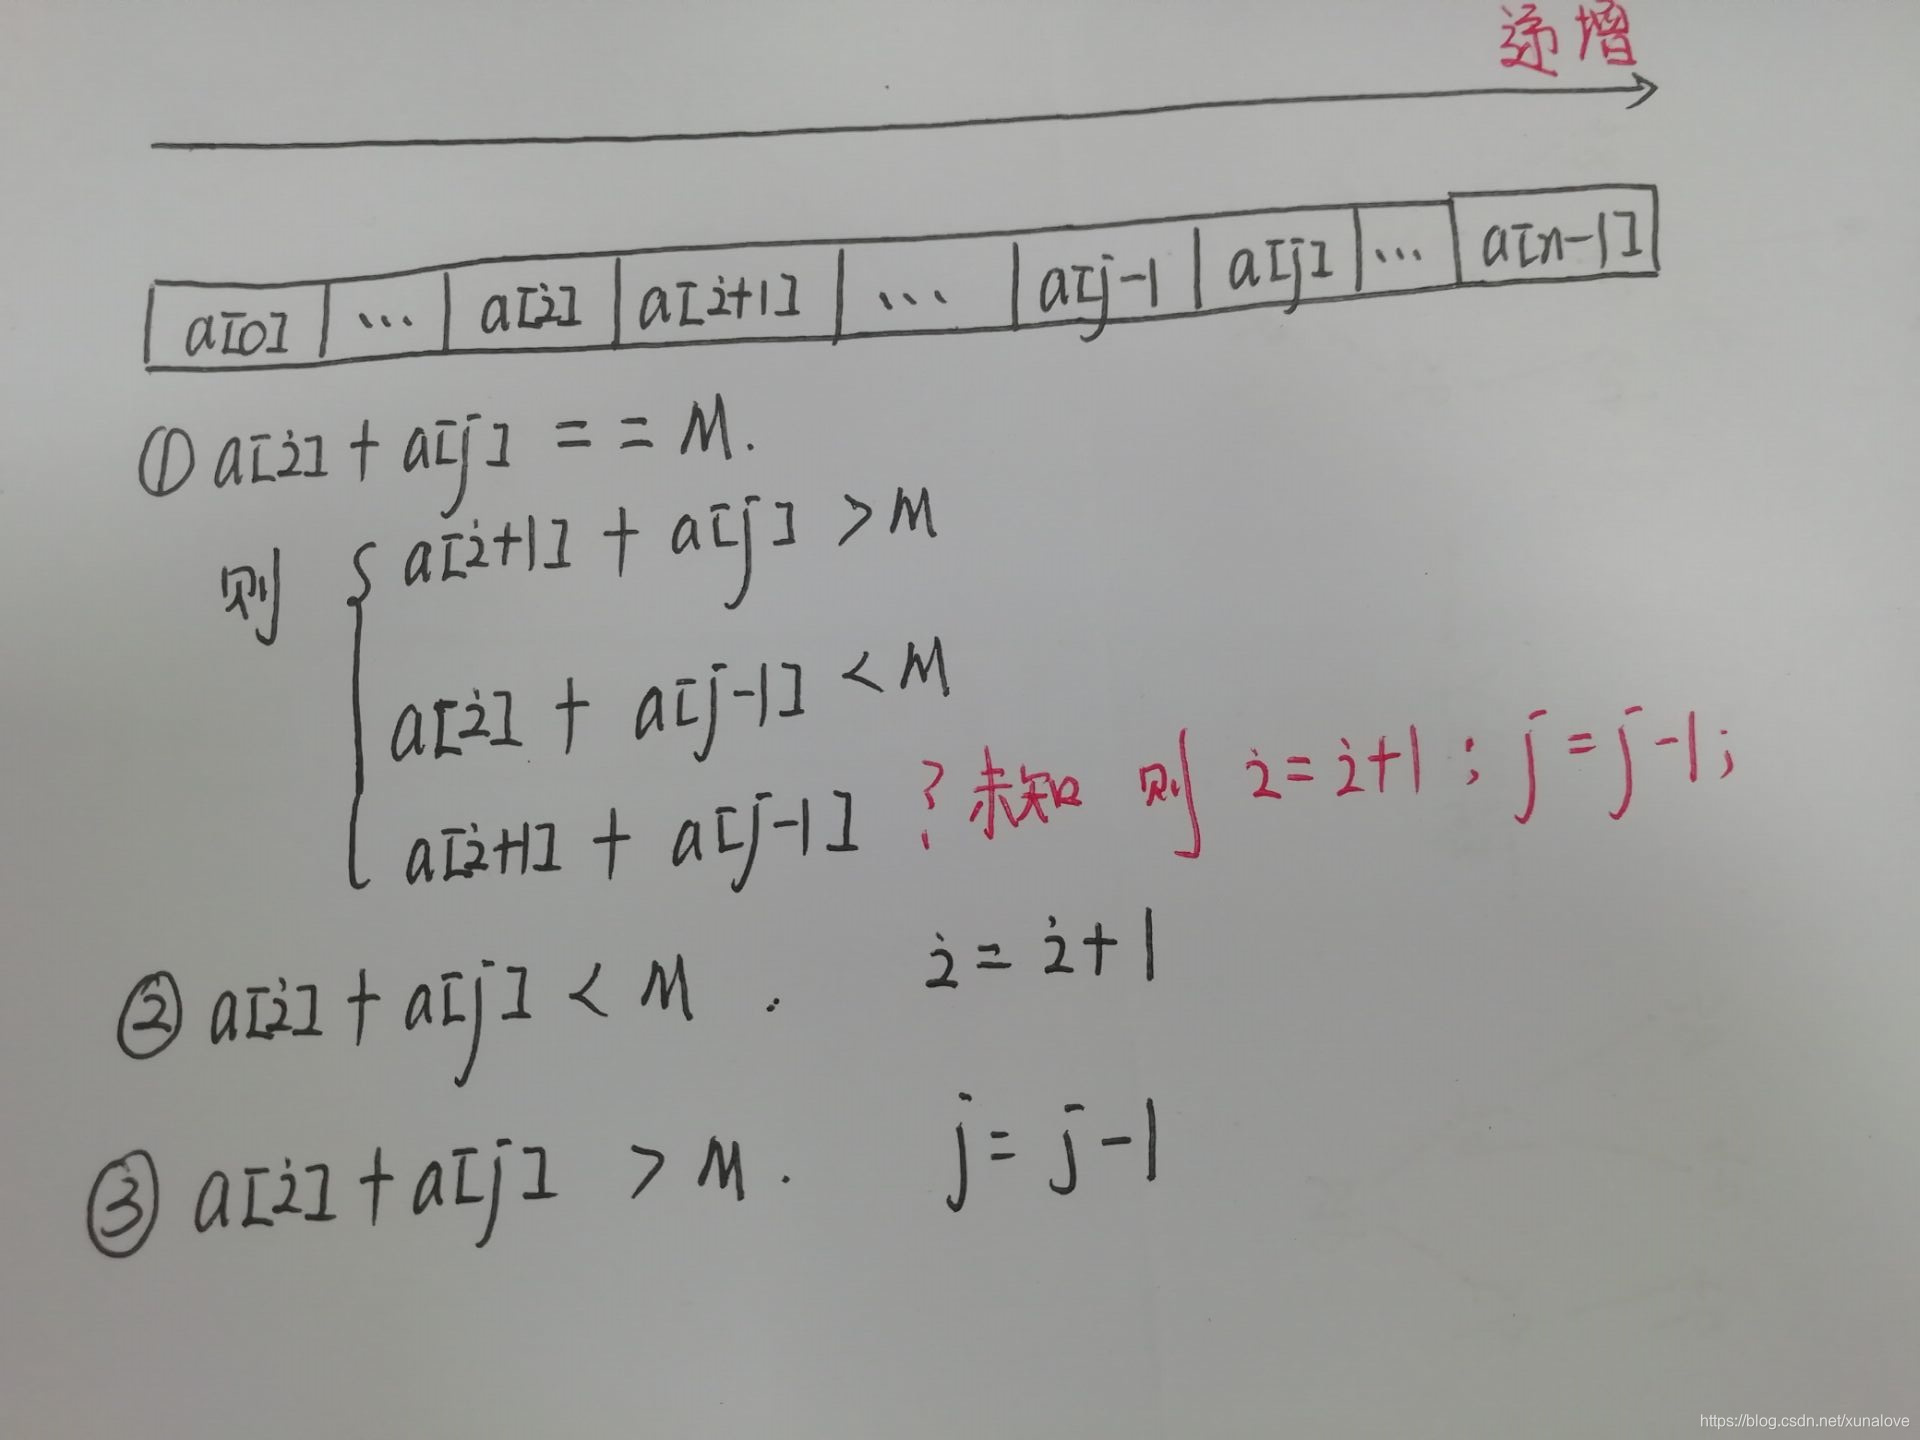 递增
a[0] ... a[i] a[i+1] ... a[j-1 a[j] ... a[n-1]
① a[i] + a[j] = = M.
则 { a[i+1] + a[j] > M
a[i] + a[j-1] < M
a[i+1] + a[j-1] ? 未知 则 i=i+1; j=j-1;
② a[i] + a[j] < M . i=i+1
③ a[i] + a[j] > M. j=j-1
https://blog.csdn.net/xunalove